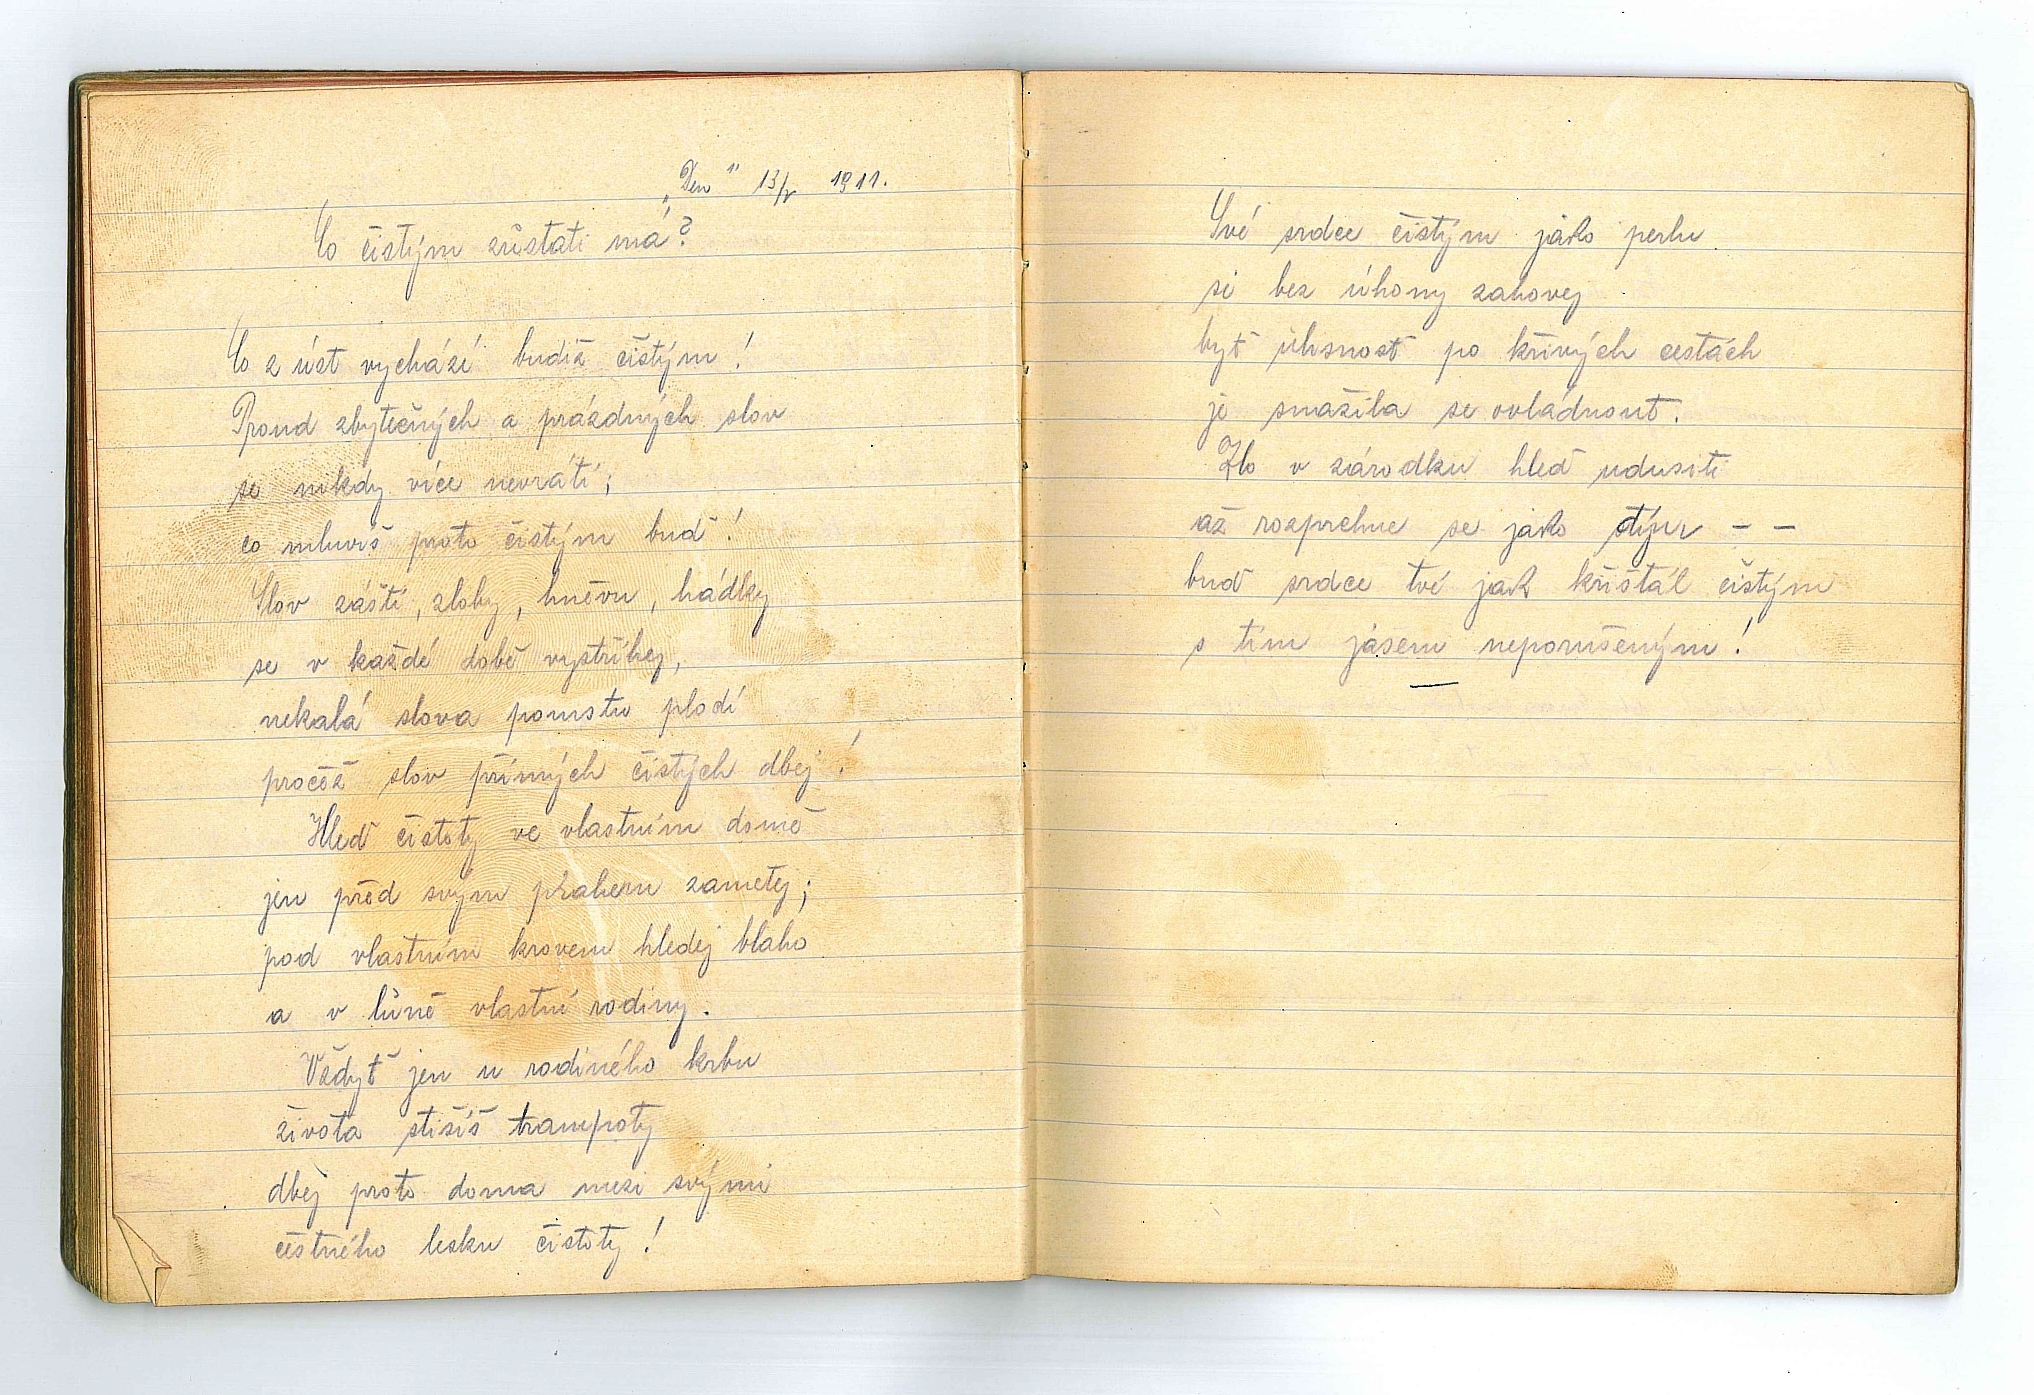 „Den" 13/V 1911.
Co čistým zůstati má?
Co z úst vychází budiž čistým!
Proud zbytečných a prázdných slov
se nikdy více nevrátí;
co mluvíš proto čistým buď!
Slov záští, zloby, hněvu, hádky
se v každé době vystříhej,
nekalá slova pomstu plodí
pročež slov přímých čistých dbej!
Hleď čistoty ve vlastním domě
jen před svým prahem zametej;
pod vlastním krovem hledej blaho
a v lůně vlastní rodiny.
Vždyť jen u rodiného krbu
života stišíš trampoty
dbej proto doma mezi svými
čestného lesku čistoty!
Své srdce čistým jako perlu
si bez úhony zahovej
byť úlisnosť po křivých cestách
je snažila se ovládnouť.
Zlo v zárodku hleď udusiti
až rozprchne se jako dým – –
buď srdce tvé jak křišťál čistým
s tím jasem neporušeným!